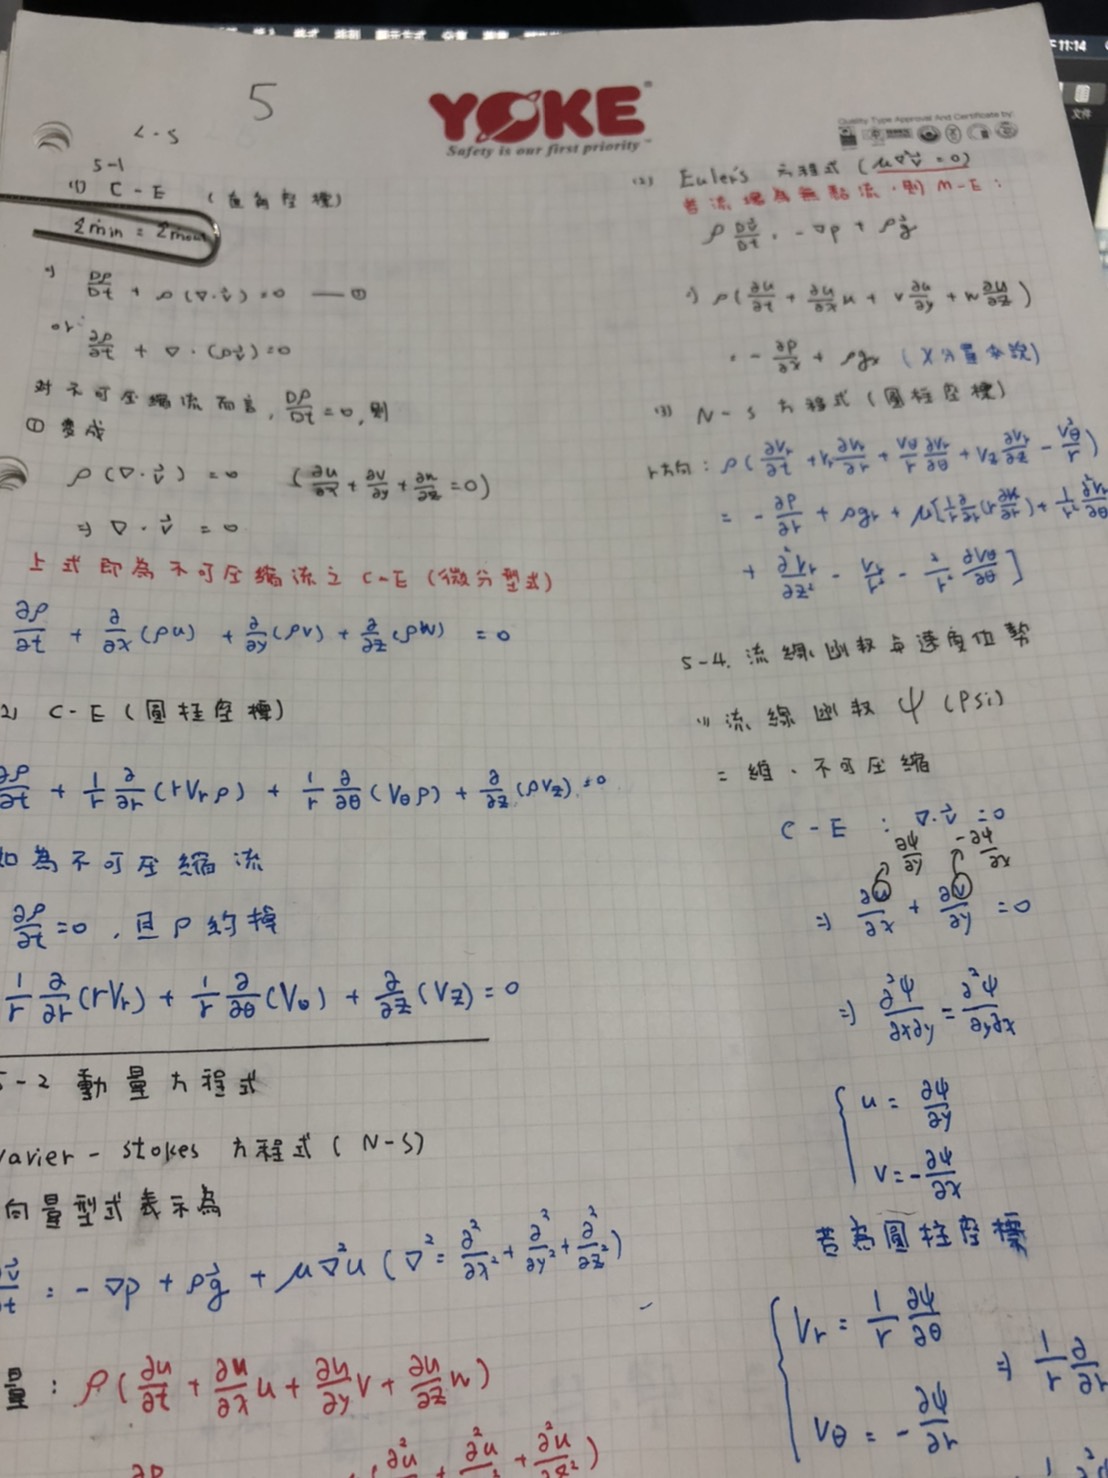 11:14
文件
5
YOKE
Safety is our first priority
Quality Type Approval And Certificate by:
L-S
5-1
(1) C-E (直角座標)
Σṁin = Σṁout
⇒ Dρ/Dt + ρ(∇·v⃗)=0 —①
or: ∂ρ/∂t + ∇·(ρv⃗)=0
对不可压縮流而言, Dρ/Dt=0, 則
①变成
ρ(∇·v⃗) = 0 (∂u/∂x+∂v/∂y+∂w/∂z=0)
⇒ ∇·v⃗ = 0
上式即為不可压縮流之 C-E (微分型式)
∂ρ/∂t + ∂/∂x(ρu) + ∂/∂y(ρv) + ∂/∂z(ρw) = 0
2) C-E (圓柱座標)
∂ρ/∂t + 1/r ∂/∂r(rVrρ) + 1/r ∂/∂θ(Vθρ) + ∂/∂z(ρVz)=0
如為不可压縮流
∂ρ/∂t=0, 且ρ約掉
1/r ∂/∂r(rVr) + 1/r ∂/∂θ(Vθ) + ∂/∂z(Vz) = 0
5-2 動量方程式
Navier-stokes 方程式 (N-S)
向量型式表示為
= -∇p + ρg⃗ + μ∇²u (∇² = ∂²/∂x² + ∂²/∂y² + ∂²/∂z²)
量: ρ(∂u/∂t + ∂u/∂x u + ∂u/∂y v + ∂u/∂z w)
∂²u ∂²u + ∂²u/∂z²)
(2) Euler's 方程式 (μ∇²v⃗=0)
若流場為無黏流, 則 M-E:
ρ Dv⃗/Dt = -∇p + ρg⃗
⇒ ρ(∂u/∂t + ∂u/∂x u + v ∂u/∂y + w ∂u/∂z)
= -∂p/∂x + ρgx (X分量來說)
(3) N-S 方程式 (圓柱座標)
r方向: ρ(∂Vr/∂t + Vr ∂Vr/∂r + Vθ/r ∂Vr/∂θ + Vz ∂Vr/∂z - Vθ²/r)
= -∂p/∂r + ρgr + μ[1/r ∂/∂r(r ∂Vr/∂r) + 1/r² ∂²Vr/∂θ
+ ∂²Vr/∂z² - Vr/r² - 2/r² ∂Vθ/∂θ]
5-4. 流線函数与速度位勢
(1) 流線函数 ψ (Psi)
二維、不可压縮
C-E : ∇·v⃗ = 0
∂ψ/∂y -∂ψ/∂x
⇒ ∂u/∂x + ∂v/∂y = 0
⇒ ∂²ψ/∂x∂y = ∂²ψ/∂y∂x
u = ∂ψ/∂y
v = -∂ψ/∂x
若為圓柱座標
Vr = 1/r ∂ψ/∂θ
⇒ 1/r ∂/∂r
Vθ = -∂ψ/∂r